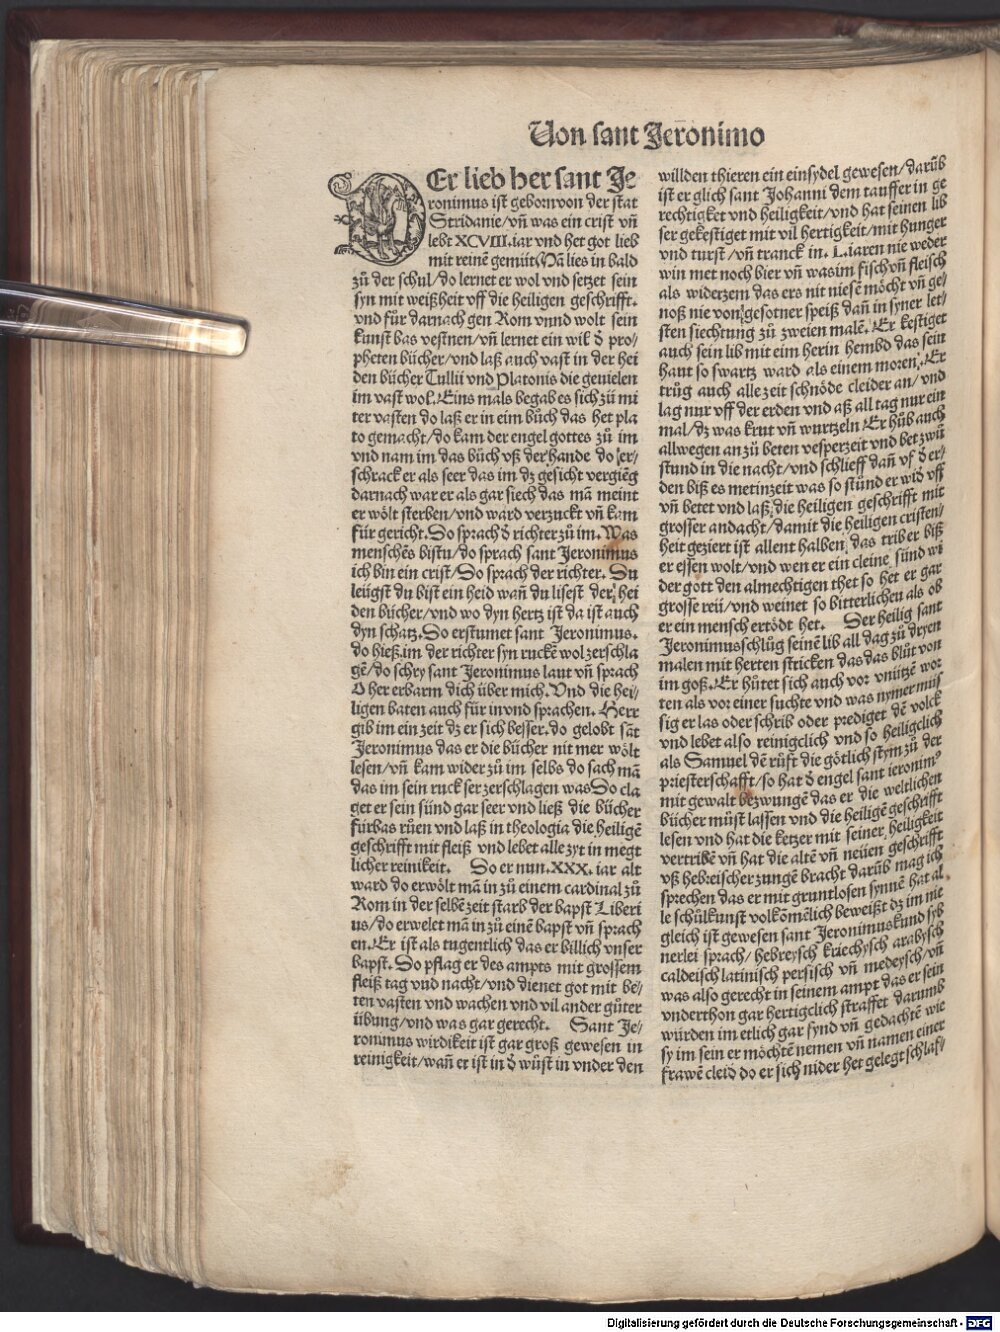 Von sant Jeronimo
DEr lieb her sant Je
ronimus ist geborn von der stat
Stridanie/vn̄ was ein crist vn̄
lebt XCVIII. iar vnd het got lieb
mit reinē gemüt Mā lies in bald
zů der schul/do lernet er wol vnd setzet sein
syn mit weißheit vff die heiligen geschrifft.
vnd für darnach gen Rom vnnd wolt sein
kunst bas vestnen/vn̄ lernet ein wil d̄ pro⸗
pheten bücher/vnd laß auch vast in der hei
den bücher Tullii vnd Platonis die geuielen
im vast wol. Eins mals begab es sich zů mi
ter vasten do laß er in eim bůch das het pla
to gemacht/do kam der engel gottes zů im
vnd nam im das bůch vß der hande do ser⸗
schrack er als seer das im dz gesicht vergiēg
darnach war er als gar siech das mā meint
er wölt sterben/vnd ward verzuckt vn̄ kam
für gericht. So sprach d̄ richter zů im. Was
menschēs bistu/do sprach sant Jeronimus
ich bin ein crist/So sprach der richter. Du
leügst du bist ein heid wan̄ du lisest der hei
den bücher/vnd wo dyn hertz ist da ist auch
dyn schatz. So erstumet sant Jeronimus.
do hieß im der richter syn ruckē wol zerschla
gē/do schry sant Jeronimus laut vn̄ sprach
O her erbarm dich über mich. Vnd die hei⸗
ligen baten auch für in vnd sprachen. Herr
gib im ein zeit dz er sich besser. do gelobt sāt
Jeronimus das er die bücher nit mer wölt
lesen/vn̄ kam wider zů im selbs do sach mā
das im sein ruck ser zerschlagen was So cla
get er sein sünd gar seer vnd ließ die bücher
fürbas růen vnd laß in theologia die heiligē
geschrifft mit fleiß vnd lebet alle zyt in megt
licher reinikeit. So er nun. XXX. iar alt
ward do erwölt mā in zů einem cardinal zů
Rom in der selbē zeit starb der bapst Liberi
us/do erwelet mā in zů einē bapst vn̄ sprach
en. Er ist als tugentlich das er billich vnser
bapst. So pflag er des ampts mit grossem
fleiß tag vnd nacht/vnd dienet got mit be⸗
ten vasten vnd wachen vnd vil ander gůter
übung/vnd was gar gerecht. Sant Je⸗
ronimus wirdikeit ist gar groß gewesen in
reinigkeit/wan̄ er ist in d̄ wüst in vnder den
willden thieren ein einsydel gewesen/darūb
ist er glich sant Johanni dem tauffer in ge
rechtigket vnd heiligkeit/vnd hat seinen lib
ser gekestiget mit vil hertigkeit/mit hunger
vnd turst/vn̄ tranck in. L. iaren nie weder
win met noch bier vn̄ was im fisch vn̄ fleisch
als widerzem das ers nit niesē möcht vn̄ ge⸗
noß nie von gesotner speiß dan̄ in syner let⸗
sten siechtung zů zweien malē. Er kestiget
auch sein lib mit eim herin hembd das sein
haut so swartz ward als einem moren. Er
trůg auch alle zeit schnöde cleider an/vnd
lag nur vff der erden vnd aß all tag nur ein
mal/dz was krut vn̄ wurtzeln Er hůb auch
allwegen an zů beten vesperzeit vnd bet zwů
stund in die nacht/vnd schlieff dan̄ vf d̄ er⸗
den biß es metinzeit was so stůnd er wid̄ vff
vn̄ betet vnd laß die heiligen geschrifft mit
grosser andacht/damit die heiligen cristen⸗
heit geziert ist allent halben das trib er biß
er essen wolt/vnd wen er ein cleine sünd wi
der gott den almechtigen thet so het er gar
grosse reü/vnd weinet so bitterlichen als ob
er ein mensch ertödt het. Der heilig sant
Jeronimus schlůg seinē lib all dag zů dryen
malen mit herten stricken das das blůt von
im goß. Er hütet sich auch vor vnützē wor
ten als vor einer suchte vnd was nymer müs
sig er las oder schrib oder prediget dē volck
vnd lebet also reinigclich vnd so heiligclich
als Samuel dē růfft die götlich stym zů der
priesterschafft/so hat d̄ engel sant ieronimꝰ
mit gewalt bezwungē das er die weltlichen
bücher můst lassen vnd die heiligē geschrifft
lesen vnd hat die ketzer mit seiner heiligkeit
vertribē vn̄ hat die altē vn̄ neüen geschrifft
vß hebreischer zungē bracht darūb mag ich
sprechen das er mit gruntlosen synnē hat al
le schůlkunst volkōmēlich beweißt dz im nie
gleich ist gewesen sant Jeronimus kund syb
nerlei sprach/hebreysch kriechysch arabysch
caldeisch latinisch persisch vn̄ medeysch/vn̄
was also gerecht in seinem ampt das er sein
vnderthon gar hertigclich straffet darumb
wurden im etlich gar fynd vn̄ gedachtē wie
sy im sein er möchtē nemen vn̄ namen einer
frawē cleid do er sich nider het gelegt schlaf⸗
Digitalisierung gefördert durch die Deutsche Forschungsgemeinschaft - DFG